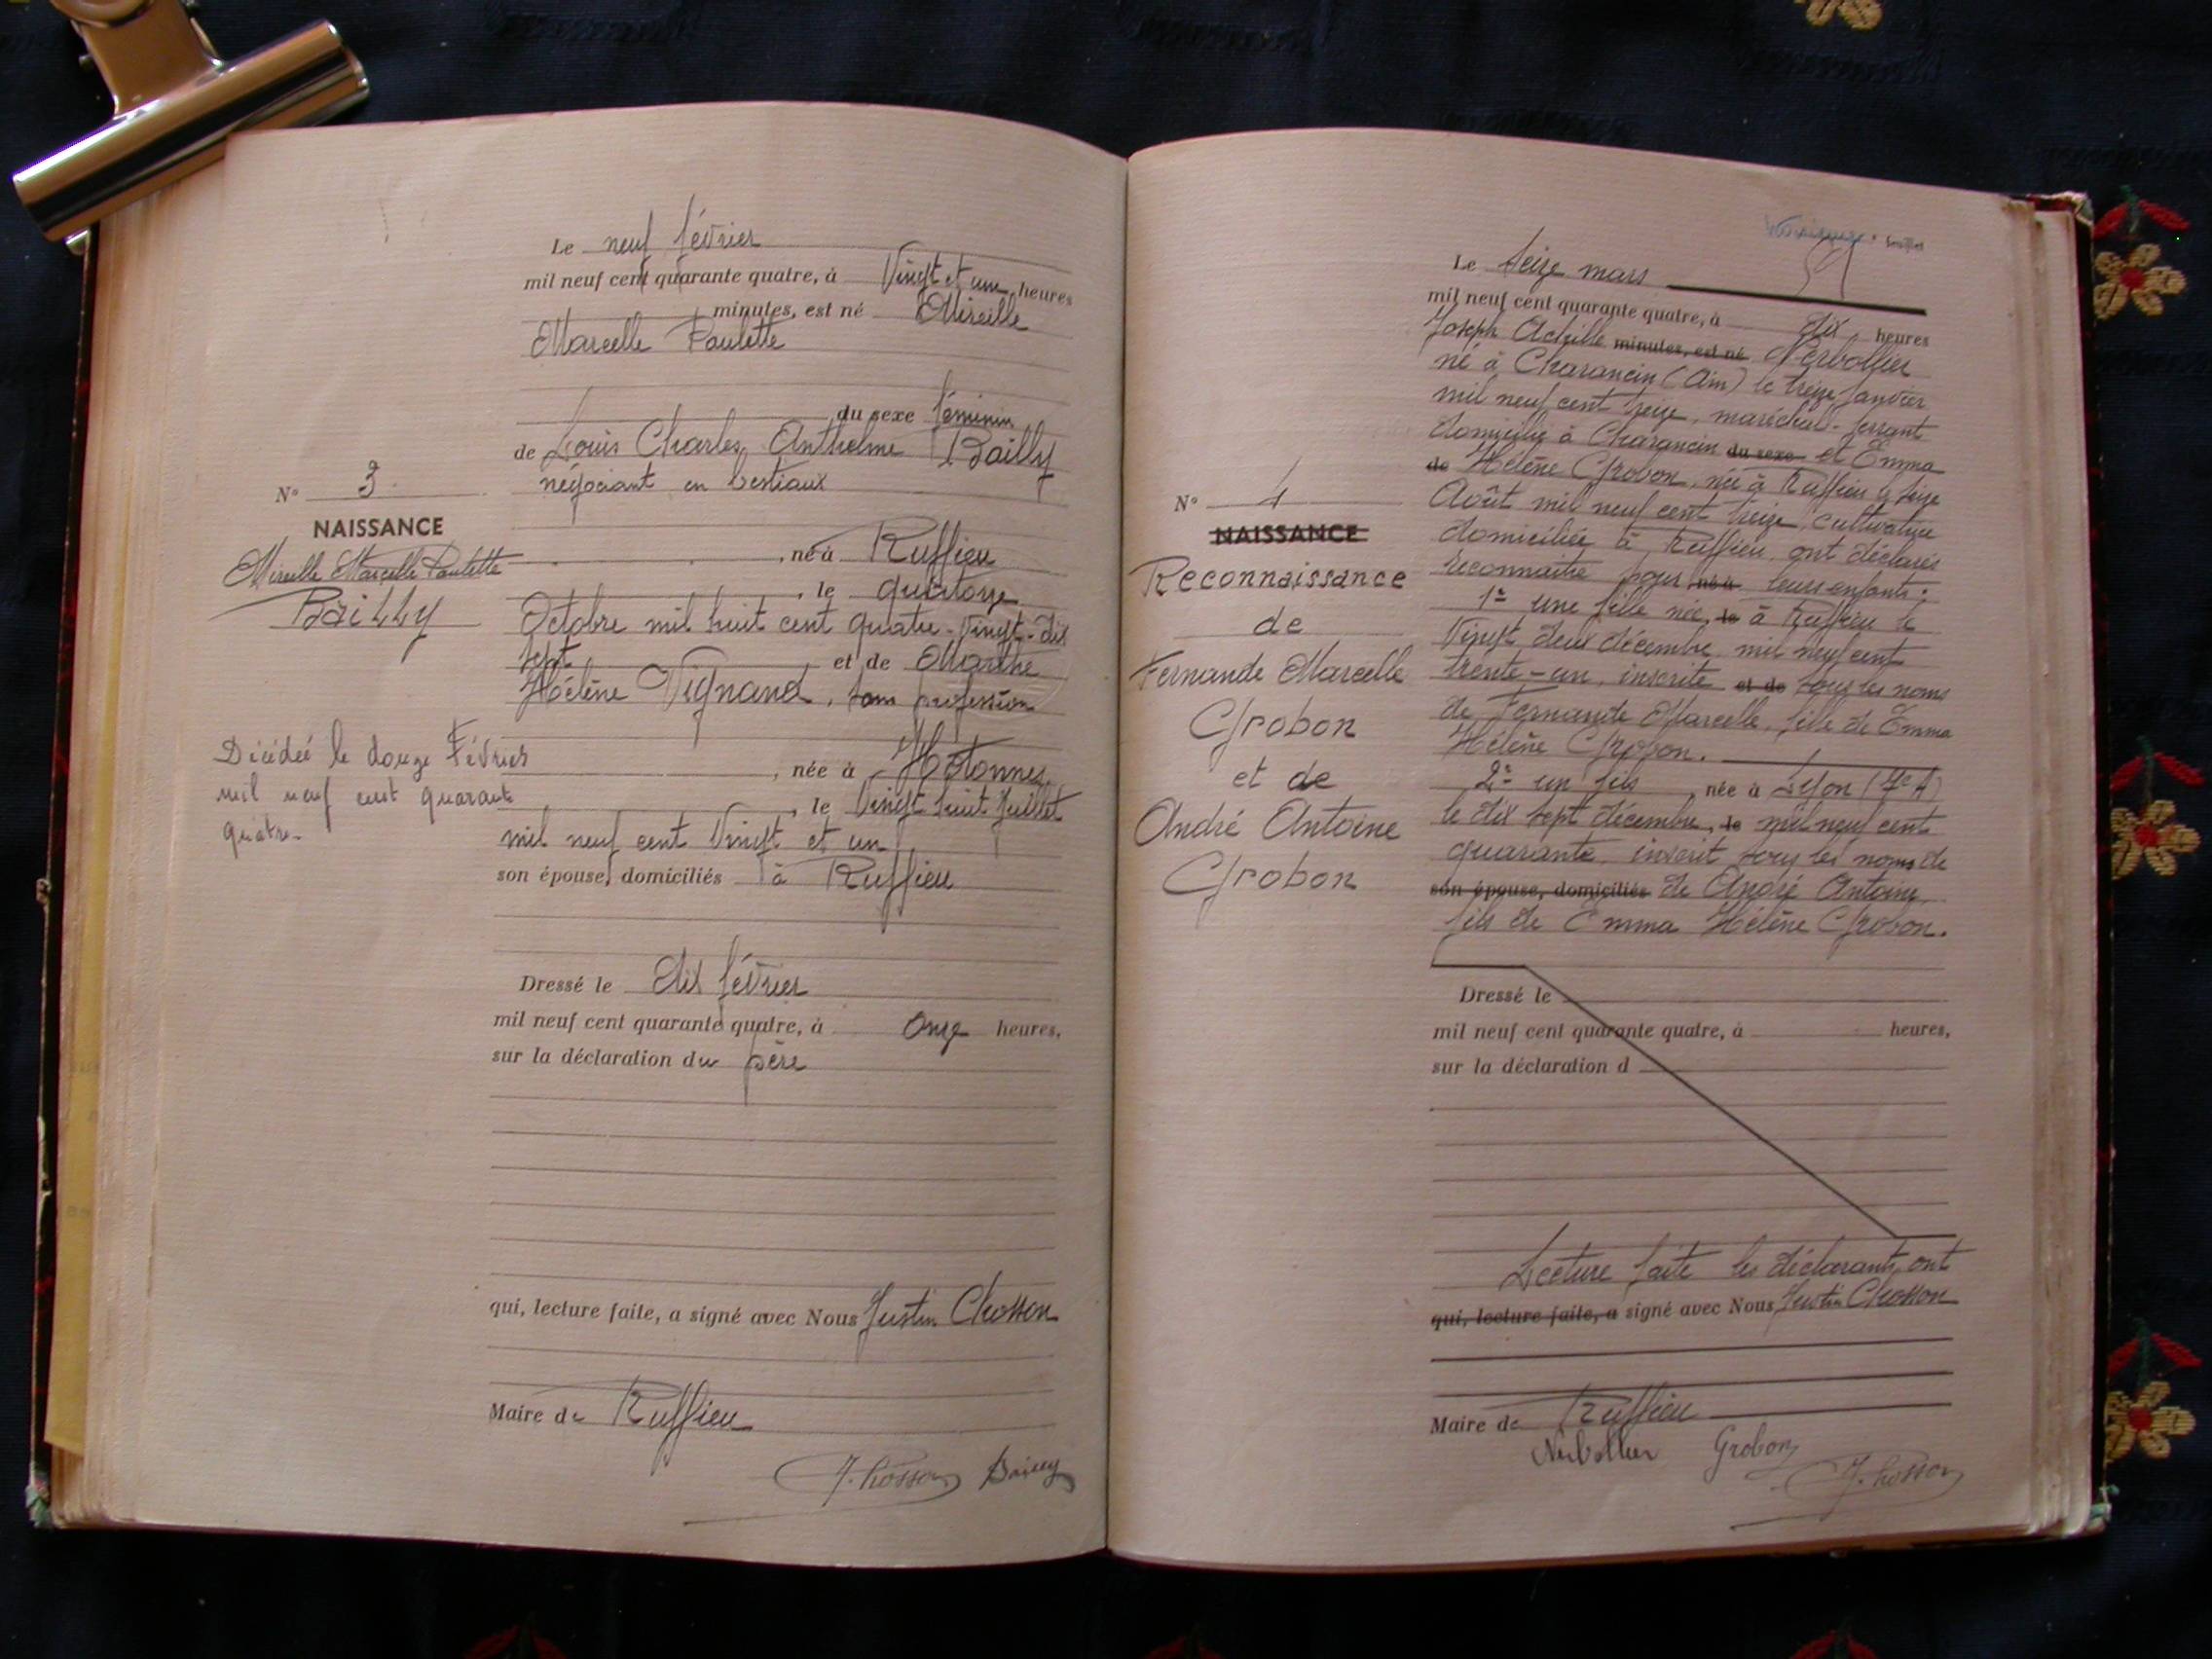 Le neuf février
mil neuf cent quarante quatre, à Vingt et une heures
minutes, est né Mireille
Marcelle Paulette
du sexe féminin
de Louis Charles Anthelme Bailly
négociant en bestiaux
N° 3
NAISSANCE
Mireille Marcelle Paulette
BAILLY
, né à Ruffieu
, le quatorze
Octobre mil huit cent quatre-Vingt-dix
sept et de Marthe
Hélène Vignand, sans profession
Décédée le douze Février
mil neuf cent quarante
quatre-
, née à Hotonnes
, le Vingt huit Juillet
mil neuf cent Vingt et un
son épouse, domiciliés à Ruffieu
Dressé le dix février
mil neuf cent quarante quatre, à onze heures,
sur la déclaration du père
qui, lecture faite, a signé avec Nous Justin Chosson
Maire de Ruffieu
J. Chosson Bailly
Le Seize mars
mil neuf cent quarante quatre, à dix heures
Joseph Achille minutes, est né Nerbollier
né à Charancin (Ain) le treize Janvier
mil neuf cent treize, maréchal-ferrant
domicilié à Charancin du sexe et Emma
de Hélène Grobon, née à Ruffieu le seize
Août mil neuf cent treize, cultivatrice
domiciliée à Ruffieu, ont déclarés
reconnaitre pour né à leurs enfants:
1° une fille née, le à Ruffieu le
Vingt deux décembre mil neuf cent
trente-un, inscrite et de sous les noms
de Fernande Marcelle, fille de Emma
Hélène Grobon.
2° un fils, née à Lyon (7e A)
le dix sept décembre, le mil neuf cent
quarante, inscrit sous les noms de
son épouse, domiciliés de André Antoine,
fils de Emma Hélène Grobon.
N° 4
NAISSANCE
Reconnaissance
de
Fernande Marcelle
Grobon
et de
André Antoine
Grobon
Dressé le
mil neuf cent quarante quatre, à heures,
sur la déclaration d
Lecture faite les déclarants ont
qui, lecture faite, a signé avec Nous Justin Chosson
Maire de Ruffieu
Nerbollier Grobon
J. Chosson